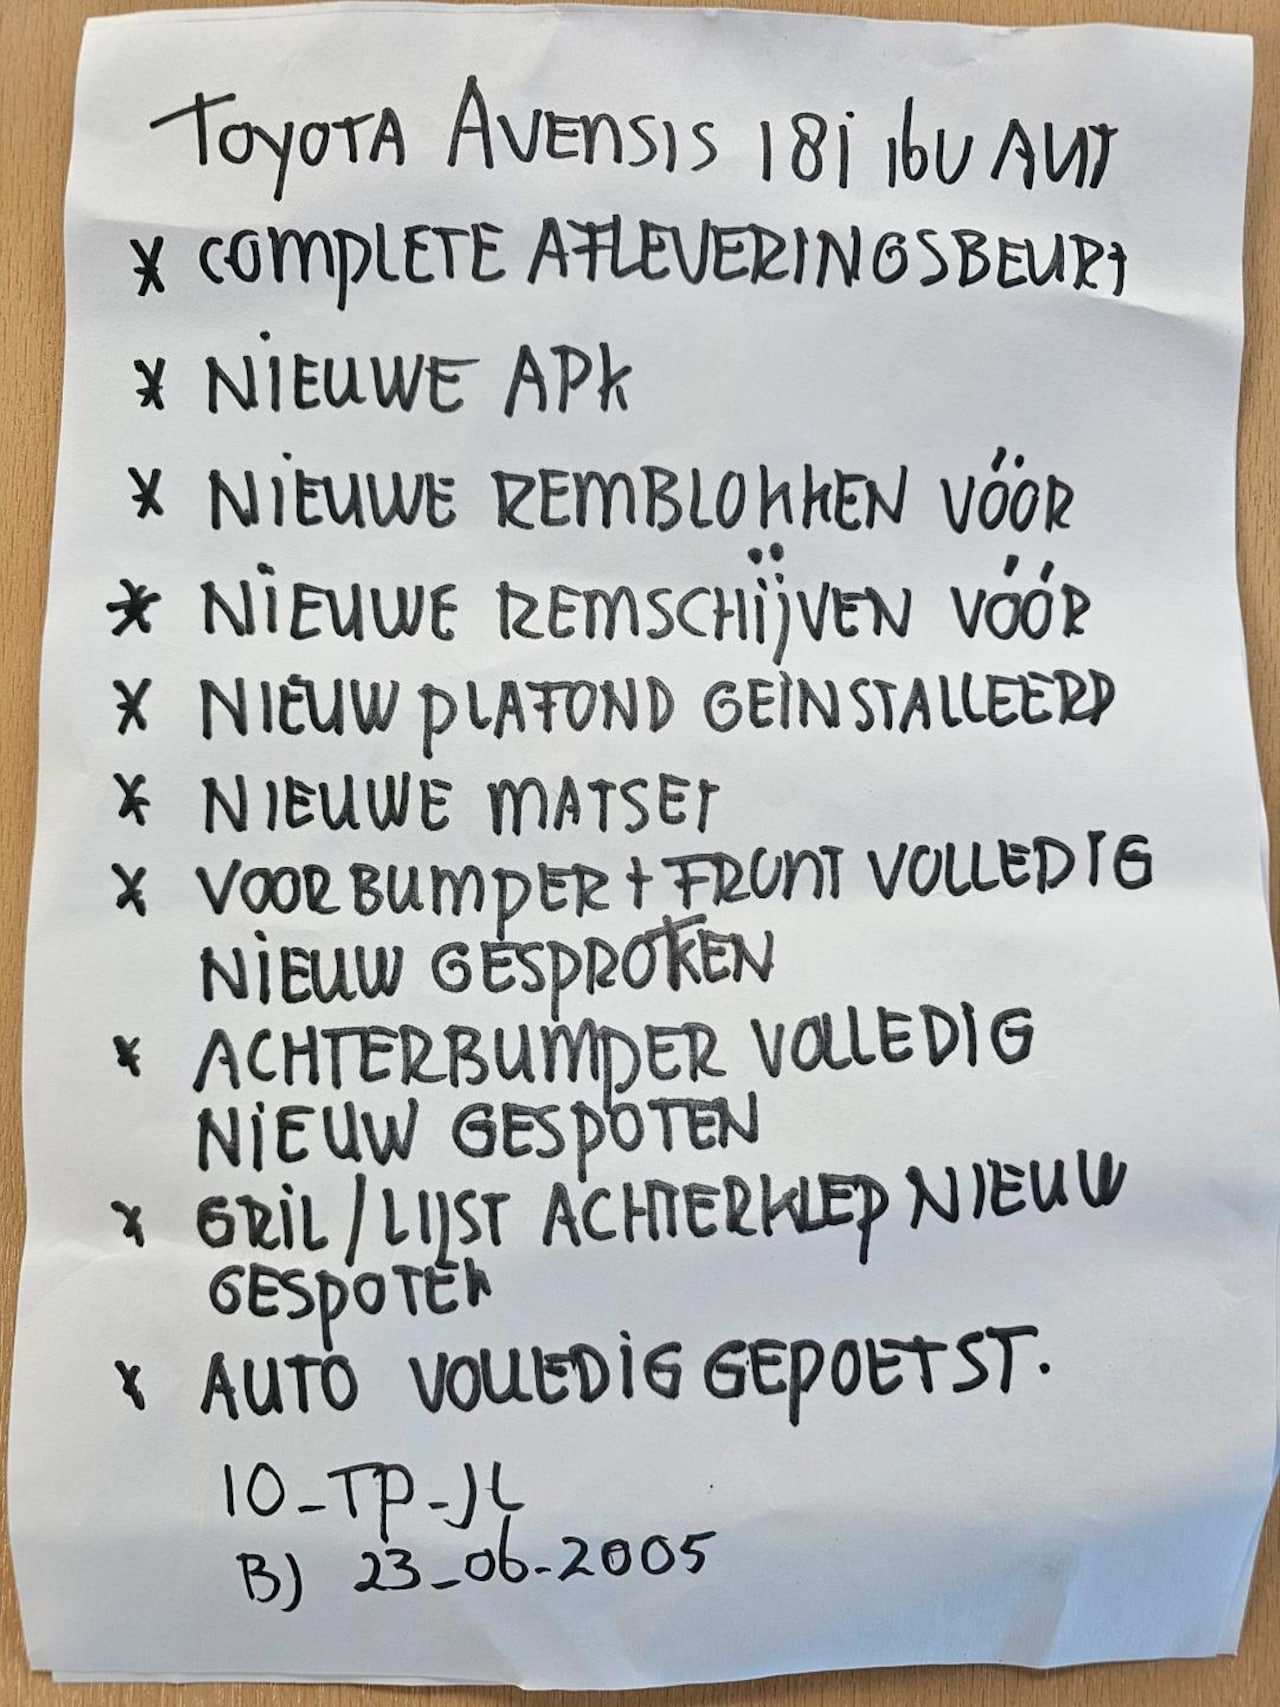 TOYOTA AVENSIS 18i 16V AUT
* COMPLETE AFLEVERINGSBEURT
* NIEUWE APK
* NIEUWE REMBLOKKEN VÓÓR
* NIEUWE REMSCHIJVEN VÓÓR
* NIEUW PLAFOND GEÏNSTALLEERD
* NIEUWE MATSET
* VOORBUMPER + FRONT VOLLEDIG
NIEUW GESPROKEN
* ACHTERBUMPER VOLLEDIG
NIEUW GESPOTEN
* GRIL/LIJST ACHTERKLEP NIEUW
GESPOTEN
* AUTO VOLLEDIG GEPOETST.
10-TP-JL
B) 23-06-2005